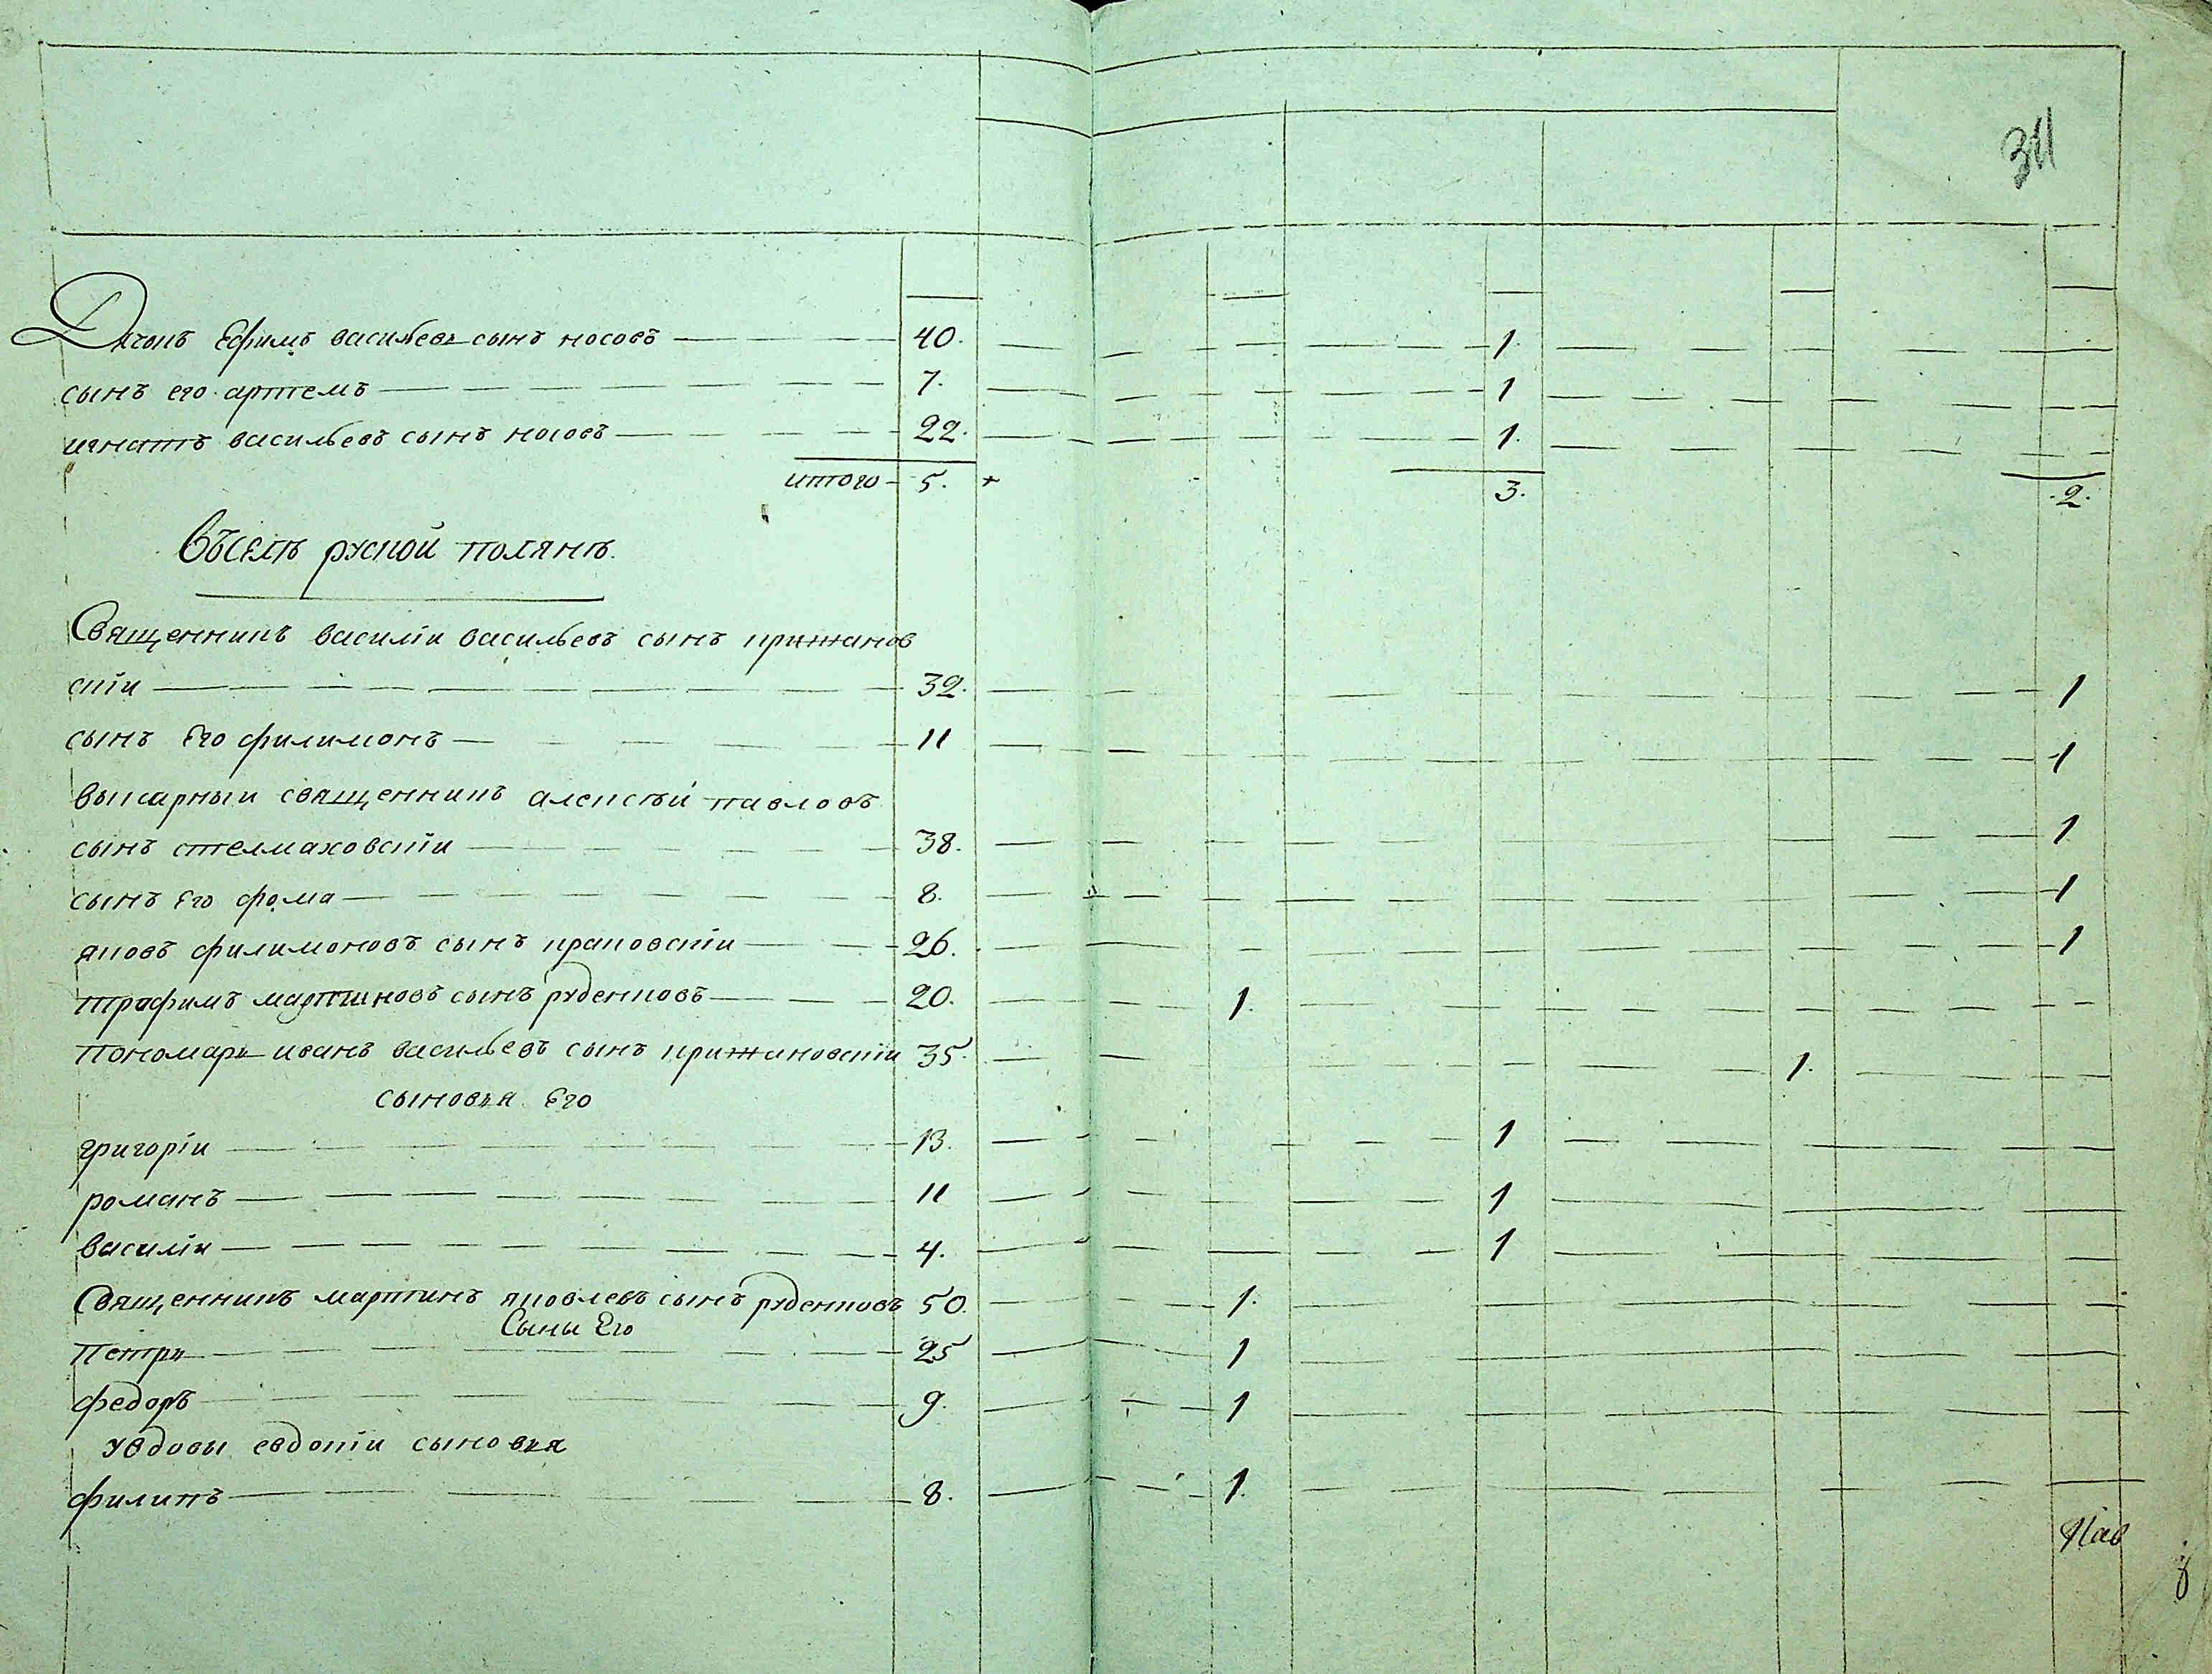 311
Дячокъ Ефимъ васильевъ сынъ носовъ 40. 1.
сынъ его артемъ 7. 1
игнатъ васильевъ сынъ носовъ 22. 1.
итого 5. 3. 2.
Въселѣ руской полянѣ.
Священникъ василіи васильевъ сынъ крижанов
скіи 32. 1
сынъ Его филимонъ 11 1
викарныи священникъ алексѣй павловъ
сынъ стелмаховскіи 38. 1
сынъ Его фома 8. 1
яковъ филимоновъ сынъ краковскіи 26. 1
трафимъ мартиновъ сынъ руденковъ 20. 1.
Пономарь иванъ васильевъ сынъ крижановскіи 35. 1.
сыновья Его
григоріи 13. 1
романъ 11 1
василіи 4. 1
Священникъ мартинъ яковлевъ сынъ руденковъ 50. 1.
Сыны Его
Петръ 25 1
федоръ 9. 1
увдовы евдокіи сыновья
филипъ 8. 1.